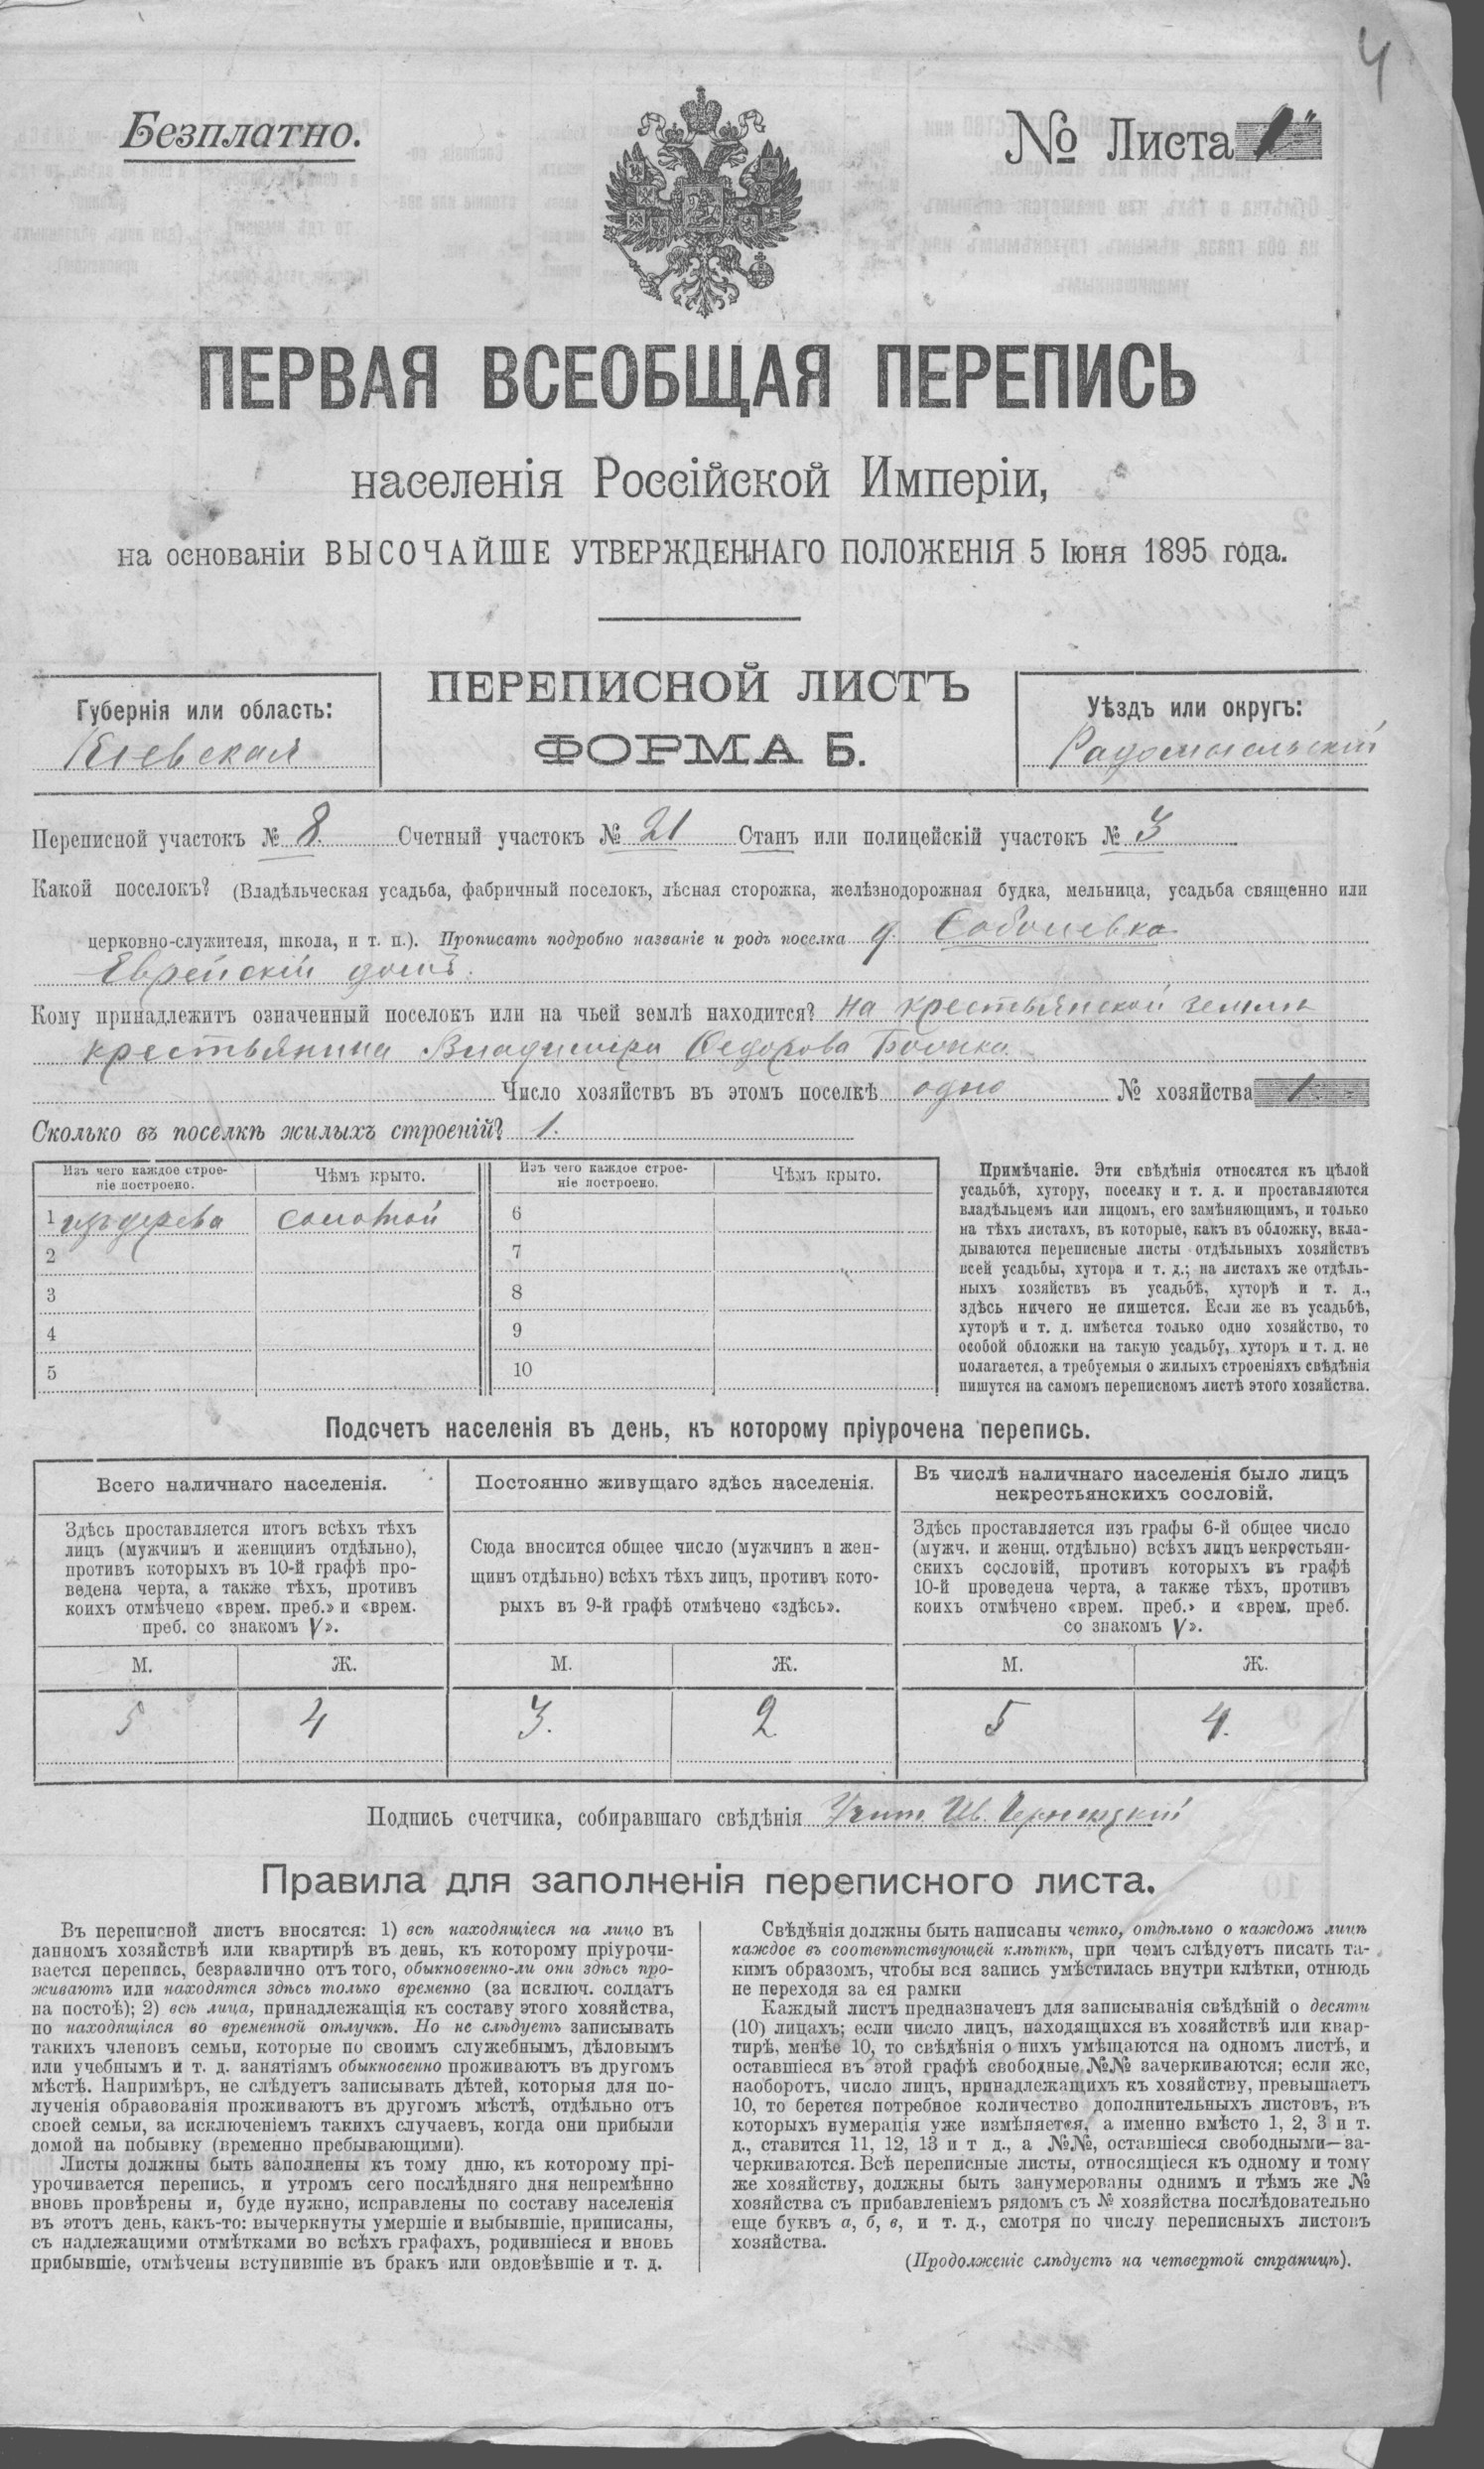 4
Безплатно.
№ Листа 1
ПЕРВАЯ ВСЕОБЩАЯ ПЕРЕПИСЬ
населенія Россійской Имперіи,
на основаніи ВЫСОЧАЙШЕ УТВЕРЖДЕННАГО ПОЛОЖЕНІЯ 5 Іюня 1895 года.
Губернія или область:
Кіевская
ПЕРЕПИСНОЙ ЛИСТЪ
ФОРМА Б.
Уѣздъ или округъ:
Радомысльскій
Переписной участокъ № 8. Счетный участокъ № 21 Станъ или полицейскій участокъ № 3
Какой поселокъ? (Владѣльческая усадьба, фабричный поселокъ, лѣсная сторожка, желѣзнодорожная будка, мельница, усадьба священно или
церковно-служителя, школа, и т. п.). Прописать подробно названіе и родъ поселка д. Соболевка
Еврейскій домъ.
Кому принадлежитъ означенный поселокъ или на чьей землѣ находится? на крестьянской землѣ
крестьянина Владиміра Федорова
Число хозяйствъ въ этомъ поселкѣ одно № хозяйства 1
Сколько въ поселкѣ жилыхъ строеній? 1.
Изъ чего каждое строе-
ніе построено.
Чѣмъ крыто.
Изъ чего каждое строе-
ніе построено.
Чѣмъ крыто.
1 изъ дерева соломой 6
2 7
3 8
4 9
5 10
Примѣчаніе. Эти свѣдѣнія относятся къ цѣлой
усадьбѣ, хутору, поселку и т. д. и проставляются
владѣльцемъ или лицомъ, его замѣняющимъ, и только
на тѣхъ листахъ, въ которые, какъ въ обложку, вкла-
дываются переписные листы отдѣльныхъ хозяйствъ
всей усадьбы, хутора и т. д.; на листахъ же отдѣль-
ныхъ хозяйствъ въ усадьбѣ, хуторѣ и т. д.,
здѣсь ничего не пишется. Если же въ усадьбѣ,
хуторѣ и т. д. имѣется только одно хозяйство, то
особой обложки на такую усадьбу, хуторъ и т. д. не
полагается, а требуемыя о жилыхъ строеніяхъ свѣдѣнія
пишутся на самомъ переписномъ листѣ этого хозяйства.
Подсчетъ населенія въ день, къ которому пріурочена перепись.
Всего наличнаго населенія.
Здѣсь проставляется итогъ всѣхъ тѣхъ
лицъ (мужчинъ и женщинъ отдѣльно),
противъ которыхъ въ 10-й графѣ про-
ведена черта, а также тѣхъ, противъ
коихъ отмѣчено «врем. преб.» и «врем.
преб. со знакомъ V».
Постоянно живущаго здѣсь населенія.
Сюда вносится общее число (мужчинъ и жен-
щинъ отдѣльно) всѣхъ тѣхъ лицъ, противъ кото-
рыхъ въ 9-й графѣ отмѣчено «здѣсь».
Въ числѣ наличнаго населенія было лицъ
некрестьянскихъ сословій.
Здѣсь проставляется изъ графы 6-й общее число
(мужч. и женщ. отдѣльно) всѣхъ лицъ некрестьян-
скихъ сословій, противъ которыхъ въ графѣ
10-й проведена черта, а также тѣхъ, противъ
коихъ отмѣчено «врем. преб.» и «врем. преб.
со знакомъ V».
М. Ж. М. Ж. М. Ж.
5 4 3. 2 5 4.
Подпись счетчика, собиравшаго свѣдѣнія Учит. Ив.
Правила для заполненія переписного листа.
Въ переписной листъ вносятся: 1) всѣ находящіеся на лицо въ
данномъ хозяйствѣ или квартирѣ въ день, къ которому пріурочи-
вается перепись, безразлично отъ того, обыкновенно-ли они здѣсь про-
живаютъ или находятся здѣсь только временно (за исключ. солдатъ
на постоѣ); 2) всѣ лица, принадлежащія къ составу этого хозяйства,
но находящіяся во временной отлучкѣ. Но не слѣдуетъ записывать
такихъ членовъ семьи, которые по своимъ служебнымъ, дѣловымъ
или учебнымъ и т. д. занятіямъ обыкновенно проживаютъ въ другомъ
мѣстѣ. Напримѣръ, не слѣдуетъ записывать дѣтей, которыя для по-
лученія образованія проживаютъ въ другомъ мѣстѣ, отдѣльно отъ
своей семьи, за исключеніемъ такихъ случаевъ, когда они прибыли
домой на побывку (временно пребывающими).
Листы должны быть заполнены къ тому дню, къ которому прі-
урочивается перепись, и утромъ сего послѣдняго дня непремѣнно
вновь провѣрены и, буде нужно, исправлены по составу населенія
въ этотъ день, какъ-то: вычеркнуты умершіе и выбывшіе, приписаны,
съ надлежащими отмѣтками во всѣхъ графахъ, родившіеся и вновь
прибывшіе, отмѣчены вступившіе въ бракъ или овдовѣвшіе и т. д.
Свѣдѣнія должны быть написаны четко, отдѣльно о каждомъ лицѣ
каждое въ соотвѣтствующей клѣткѣ, при чемъ слѣдуетъ писать та-
кимъ образомъ, чтобы вся запись умѣстилась внутри клѣтки, отнюдь
не переходя за ея рамки
Каждый листъ предназначенъ для записыванія свѣдѣній о десяти
(10) лицахъ; если число лицъ, находящихся въ хозяйствѣ или квар-
тирѣ, менѣе 10, то свѣдѣнія о нихъ умѣщаются на одномъ листѣ, и
оставшіеся въ этой графѣ свободные №№ зачеркиваются; если же,
наоборотъ, число лицъ, принадлежащихъ къ хозяйству, превышаетъ
10, то берется потребное количество дополнительныхъ листовъ, въ
которыхъ нумерація уже измѣняется, а именно вмѣсто 1, 2, 3 и т.
д., ставится 11, 12, 13 и т д., а №№, оставшіеся свободными—за-
черкиваются. Всѣ переписные листы, относящіеся къ одному и тому
же хозяйству, должны быть занумерованы однимъ и тѣмъ же №
хозяйства съ прибавленіемъ рядомъ съ № хозяйства послѣдовательно
еще буквъ а, б, в, и т. д., смотря по числу переписныхъ листовъ
хозяйства.
(Продолженіе слѣдуетъ на четвертой страницѣ).